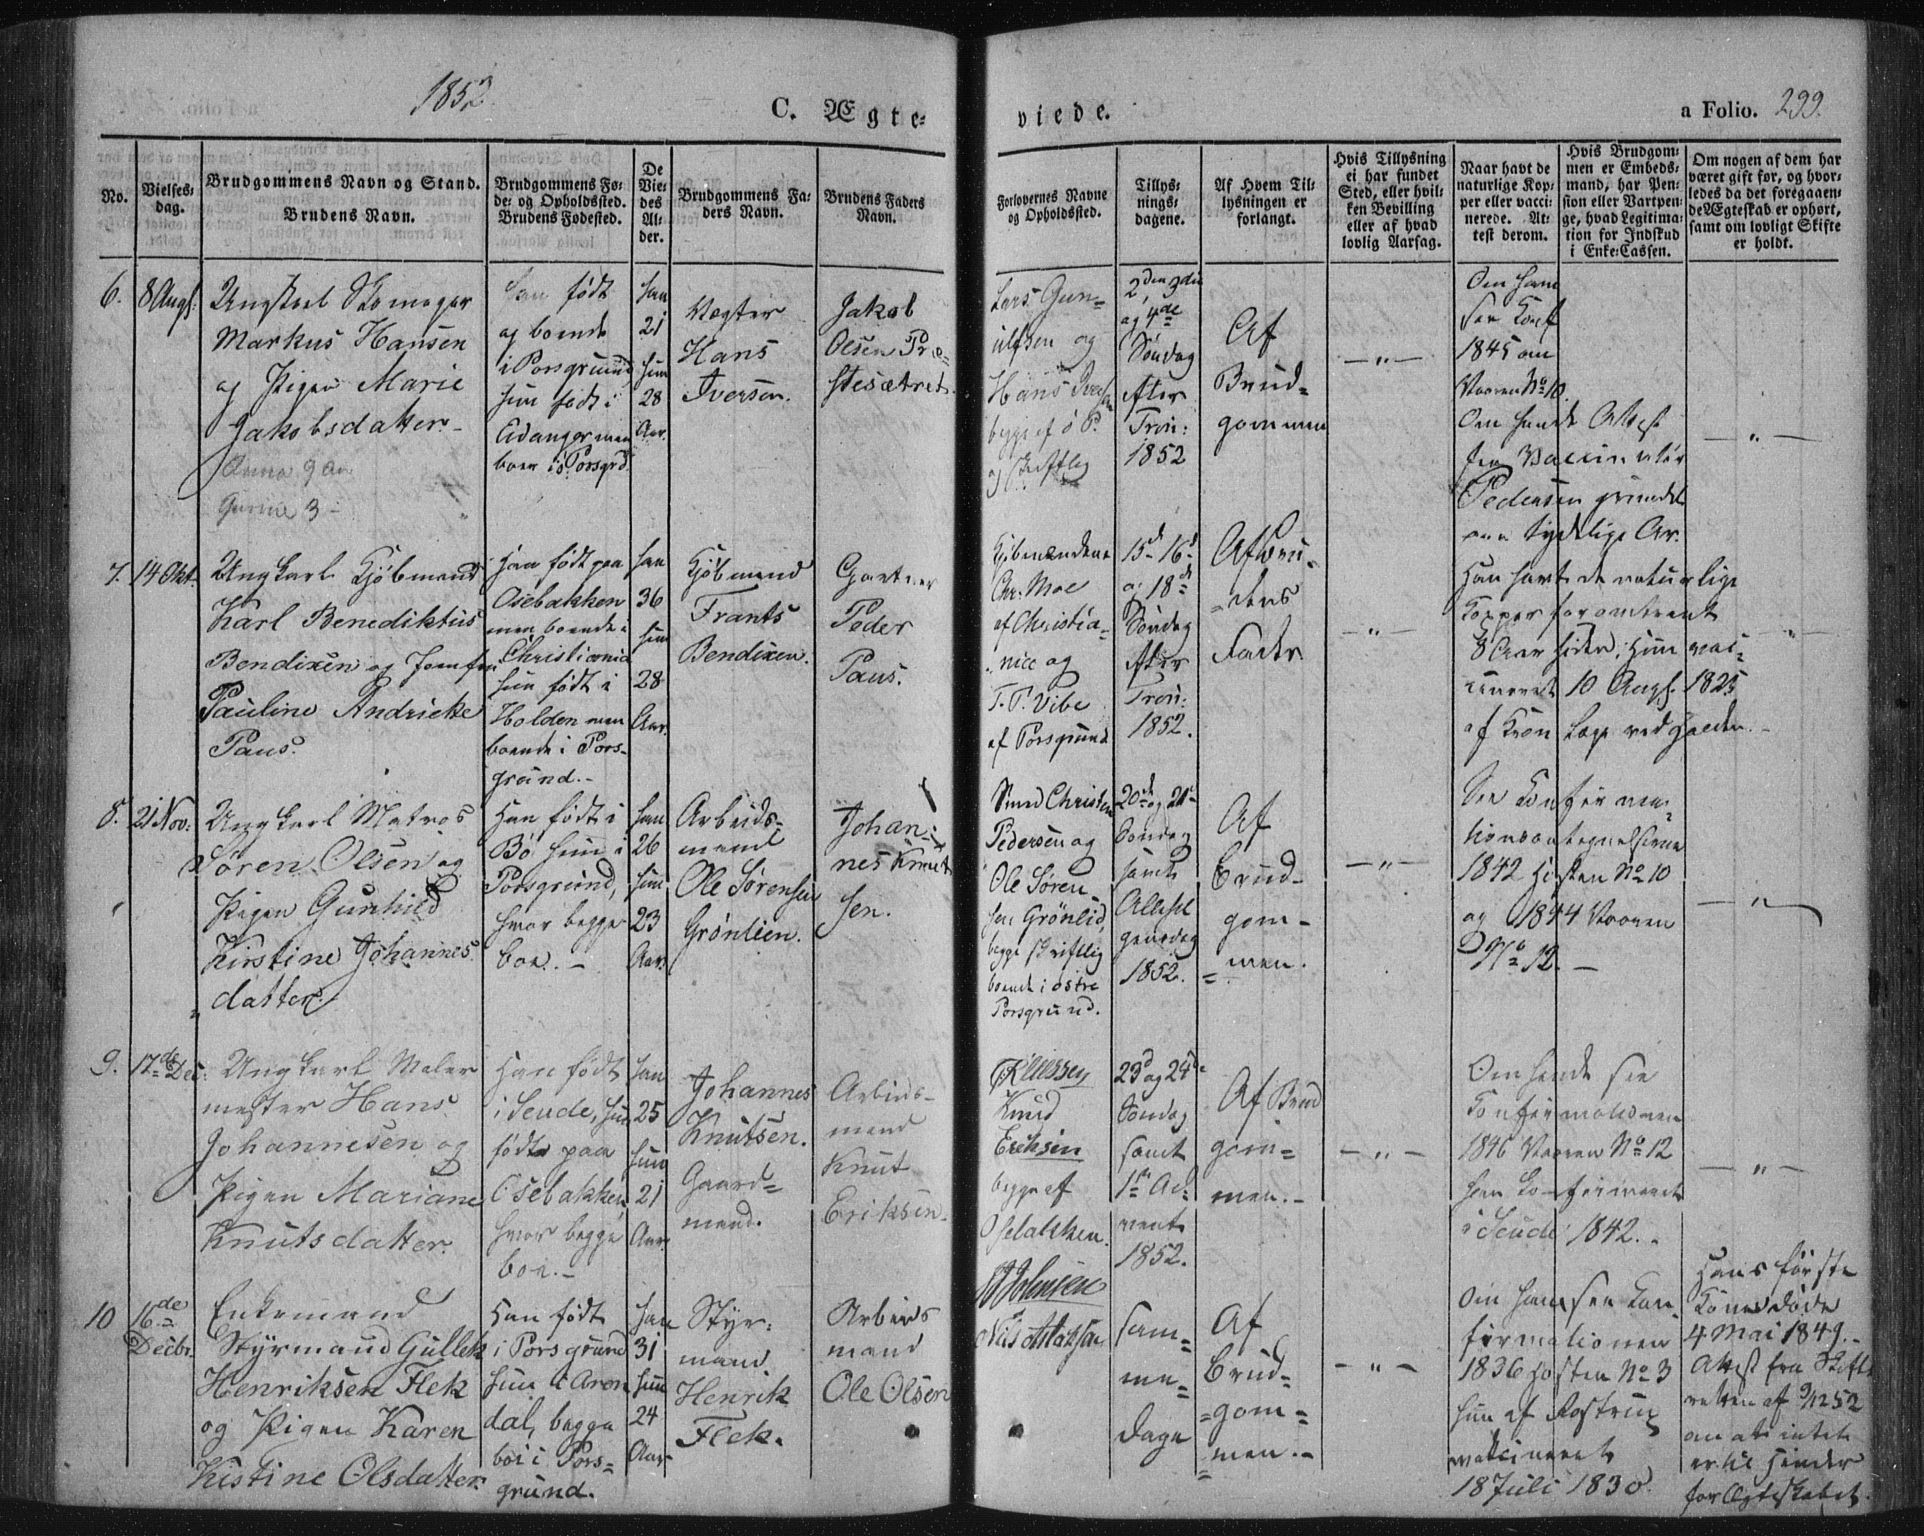 1852.
C. Ægte-
viede.
a Folio. 299.
No.
Vielses-
dag.
Brudgommens Navn og Stand.
Brudens Navn.
Brudgommens Fø-
de- og Opholdssted.
Brudens Fødested.
De
Vie-
des
Al-
der.
Brudgommens Fa-
ders Navn.
Brudens Faders
Navn.
Forlovernes Navne
og Opholdssted.
Tillys-
nings-
dagene.
Af Hvem Til-
lysningen er
forlangt.
Hvis Tillysning
ei har fundet
Sted, eller hvil-
ken Bevilling
eller af hvad
lovlig Aarsag.
Naar havt de
naturlige Kop-
per eller vacci-
nerede. At-
test derom.
Hvis Brudgom-
men er Embeds-
mand, har Pen-
sion eller Vartpen-
ge, hvad Legitima-
tion for Indskud
i Enke-Cassen.
Om nogen af dem har
været gift før, og hvor-
ledes da det foregaaen-
de Ægteskab er ophørt,
samt om lovligt Skifte
er holdt.
6.
8 Augs.
Ungkarl Skomager
Markus Hansen
og Pigen Marie
Jakobsdatter.
Han født
og boende
i Porsgrund,
hun født i
Eidanger men
boer i ø Porsgrd.
Han
21
hun
28
Aar.
Vægter
Hans
Iversen.
Jakob
Olsen Præ-
stesætret.
Lars Gun-
ulfsen og
Hans Iversen
begge af ø P.
og skriftlig
2den, 3die
og 4de
Søndag
efter
Trin:
1852
Af
Brud-
gommen
— " —
Om ham
see Konf
1845 om
Vaaren No 10.
Om hende Attest
fra Vaccinatør
Pedersen grundet
paa tydelige Ar.
— " —
7.
14 Okt.
Ungkarl Kjøbmand
Karl Benediktus
Bendixen og Jomfru
Pauline Andrieke
Paus.
Han født paa
Osebakken
men boende i
Christiania
hun født i
Holden men
boende i Pors-
grund.
Han
36
hun
28
Aar.
Kjøbmand
Frants
Bendixen.
Gartner
Peder
Paus.
Kjøbmændene
Chr. Moe
af Christia-
nia og
T. P. Vibe
af Porsgrund
15d 16d
og 18de
Søndag
efter
Trin:
1852.
Af Bru-
dens
Fader.
— " —
Han havt de naturlige
Kopper for omtrent
8 Aar siden; Hun vac-
cineret 10 Augs. 1825
af Kron Læge ved Holden.
— " —
8.
21 Nov:
Ungkarl Matros
Søren Olsen og
Pigen Gunhild
Kirstine Johannes-
datter
Han født i
Bø, hun i
Porsgrund,
hvor begge
boe.
Han
26
hun
23
Aar.
Arbeids-
mand
Ole Sørensen
Grønlien.
Johan-
nes Knut-
sen.
Smed Christen
Pedersen og
Ole Søren-
sen Grønlid,
begge skriftlig
boende i østre
Porsgrund.
20de og 21de
Søndag
samt
Allehel-
gensdag
1852.
Af
Brud-
gom-
men.
— " —
See Konfirma-
tionsantegnelserne
1842 Høsten No 10
og 1844 Vaaren
No 12.
— " —
9.
17de Dec:
Ungkarl Maler
mester Hans
Johannesen og
Pigen Mariane
Knutsdatter.
Han født
i Seude, hun
født paa
Osebakken
hvor begge
boe.
Han
25
hun
21
Aar
Johannes
Knutsen.
Gaard-
mand.
Arbeids-
mand
Knut
Eriksen.
Knud
Eriksen
begge af
Osebakken.
23d og 24de
Søndag
samt
1ste Ad-
vent
1852.
Af Brud
gom-
men.
— " —
Om hende see
Konfirmationen
1846 Vaaren No 12
han konfirmeret
i Seude 1842.
— " —
10
16de
Decbr.
Enkemand
Styrmand Gullek
Henriksen Flek
og Pigen Karen
Kistine Olsdatter.
Han født
i Porsgrund
hun i Aren
dal, begge
boe i Pors-
grund.
Han
31
hun
24
Aar
Styr-
mand
Henrik
Flek.
Arbeids
mand
Ole Olsen
Nils Aslaksen
sam-
me
Dage
Af
Brud-
gom-
men.
— " —
Om ham see Kon
firmationen
1836 Høsten No 3
hun af Rostrup
vakcineret
18 Juli 1830.
Hans første
Kone døde
4 Mai 1849.
Attest fra Skifte
retten af 9/12 52
om at intet
er til Hinder
for Ægteskabet.